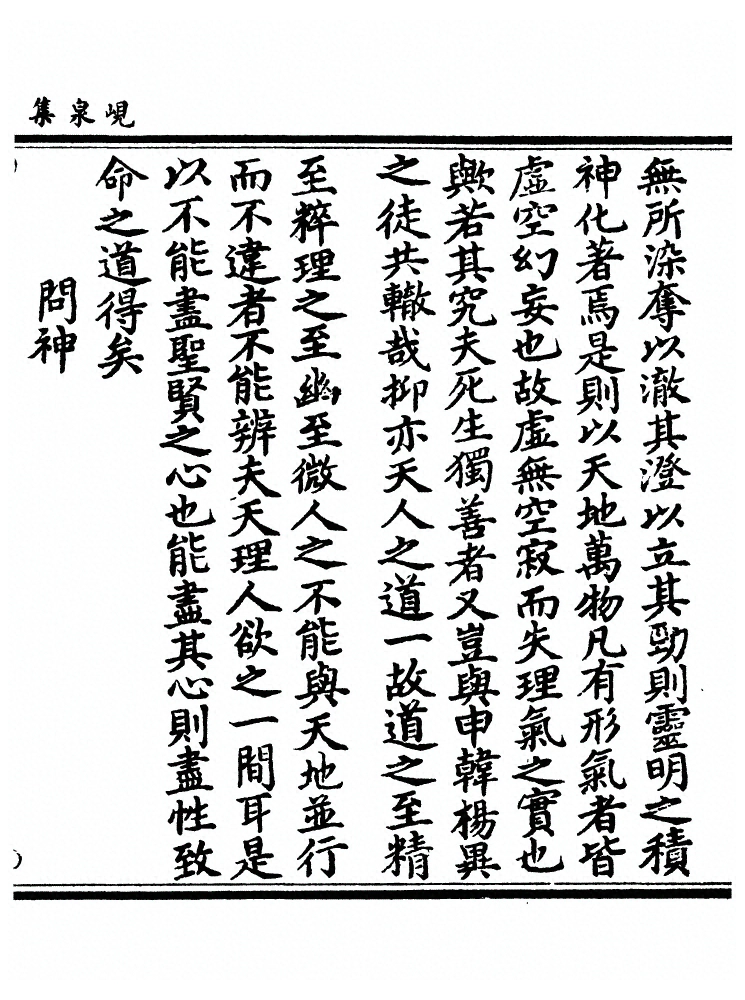 峴泉集
無所染奪以澈其澄以立其勁則靈明之積
神化著焉是則以天地萬物凡有形氣者皆
虛空幻妄也故虛無空寂而失理氣之實也
歟若其究夫死生獨善者又豈與申韓楊異
之徒共轍哉抑亦天人之道一故道之至精
至粹理之至幽至微人之不能與天地並行
而不違者不能辨夫天理人欲之一間耳是
以不能盡聖賢之心也能盡其心則盡性致
命之道得矣
問神